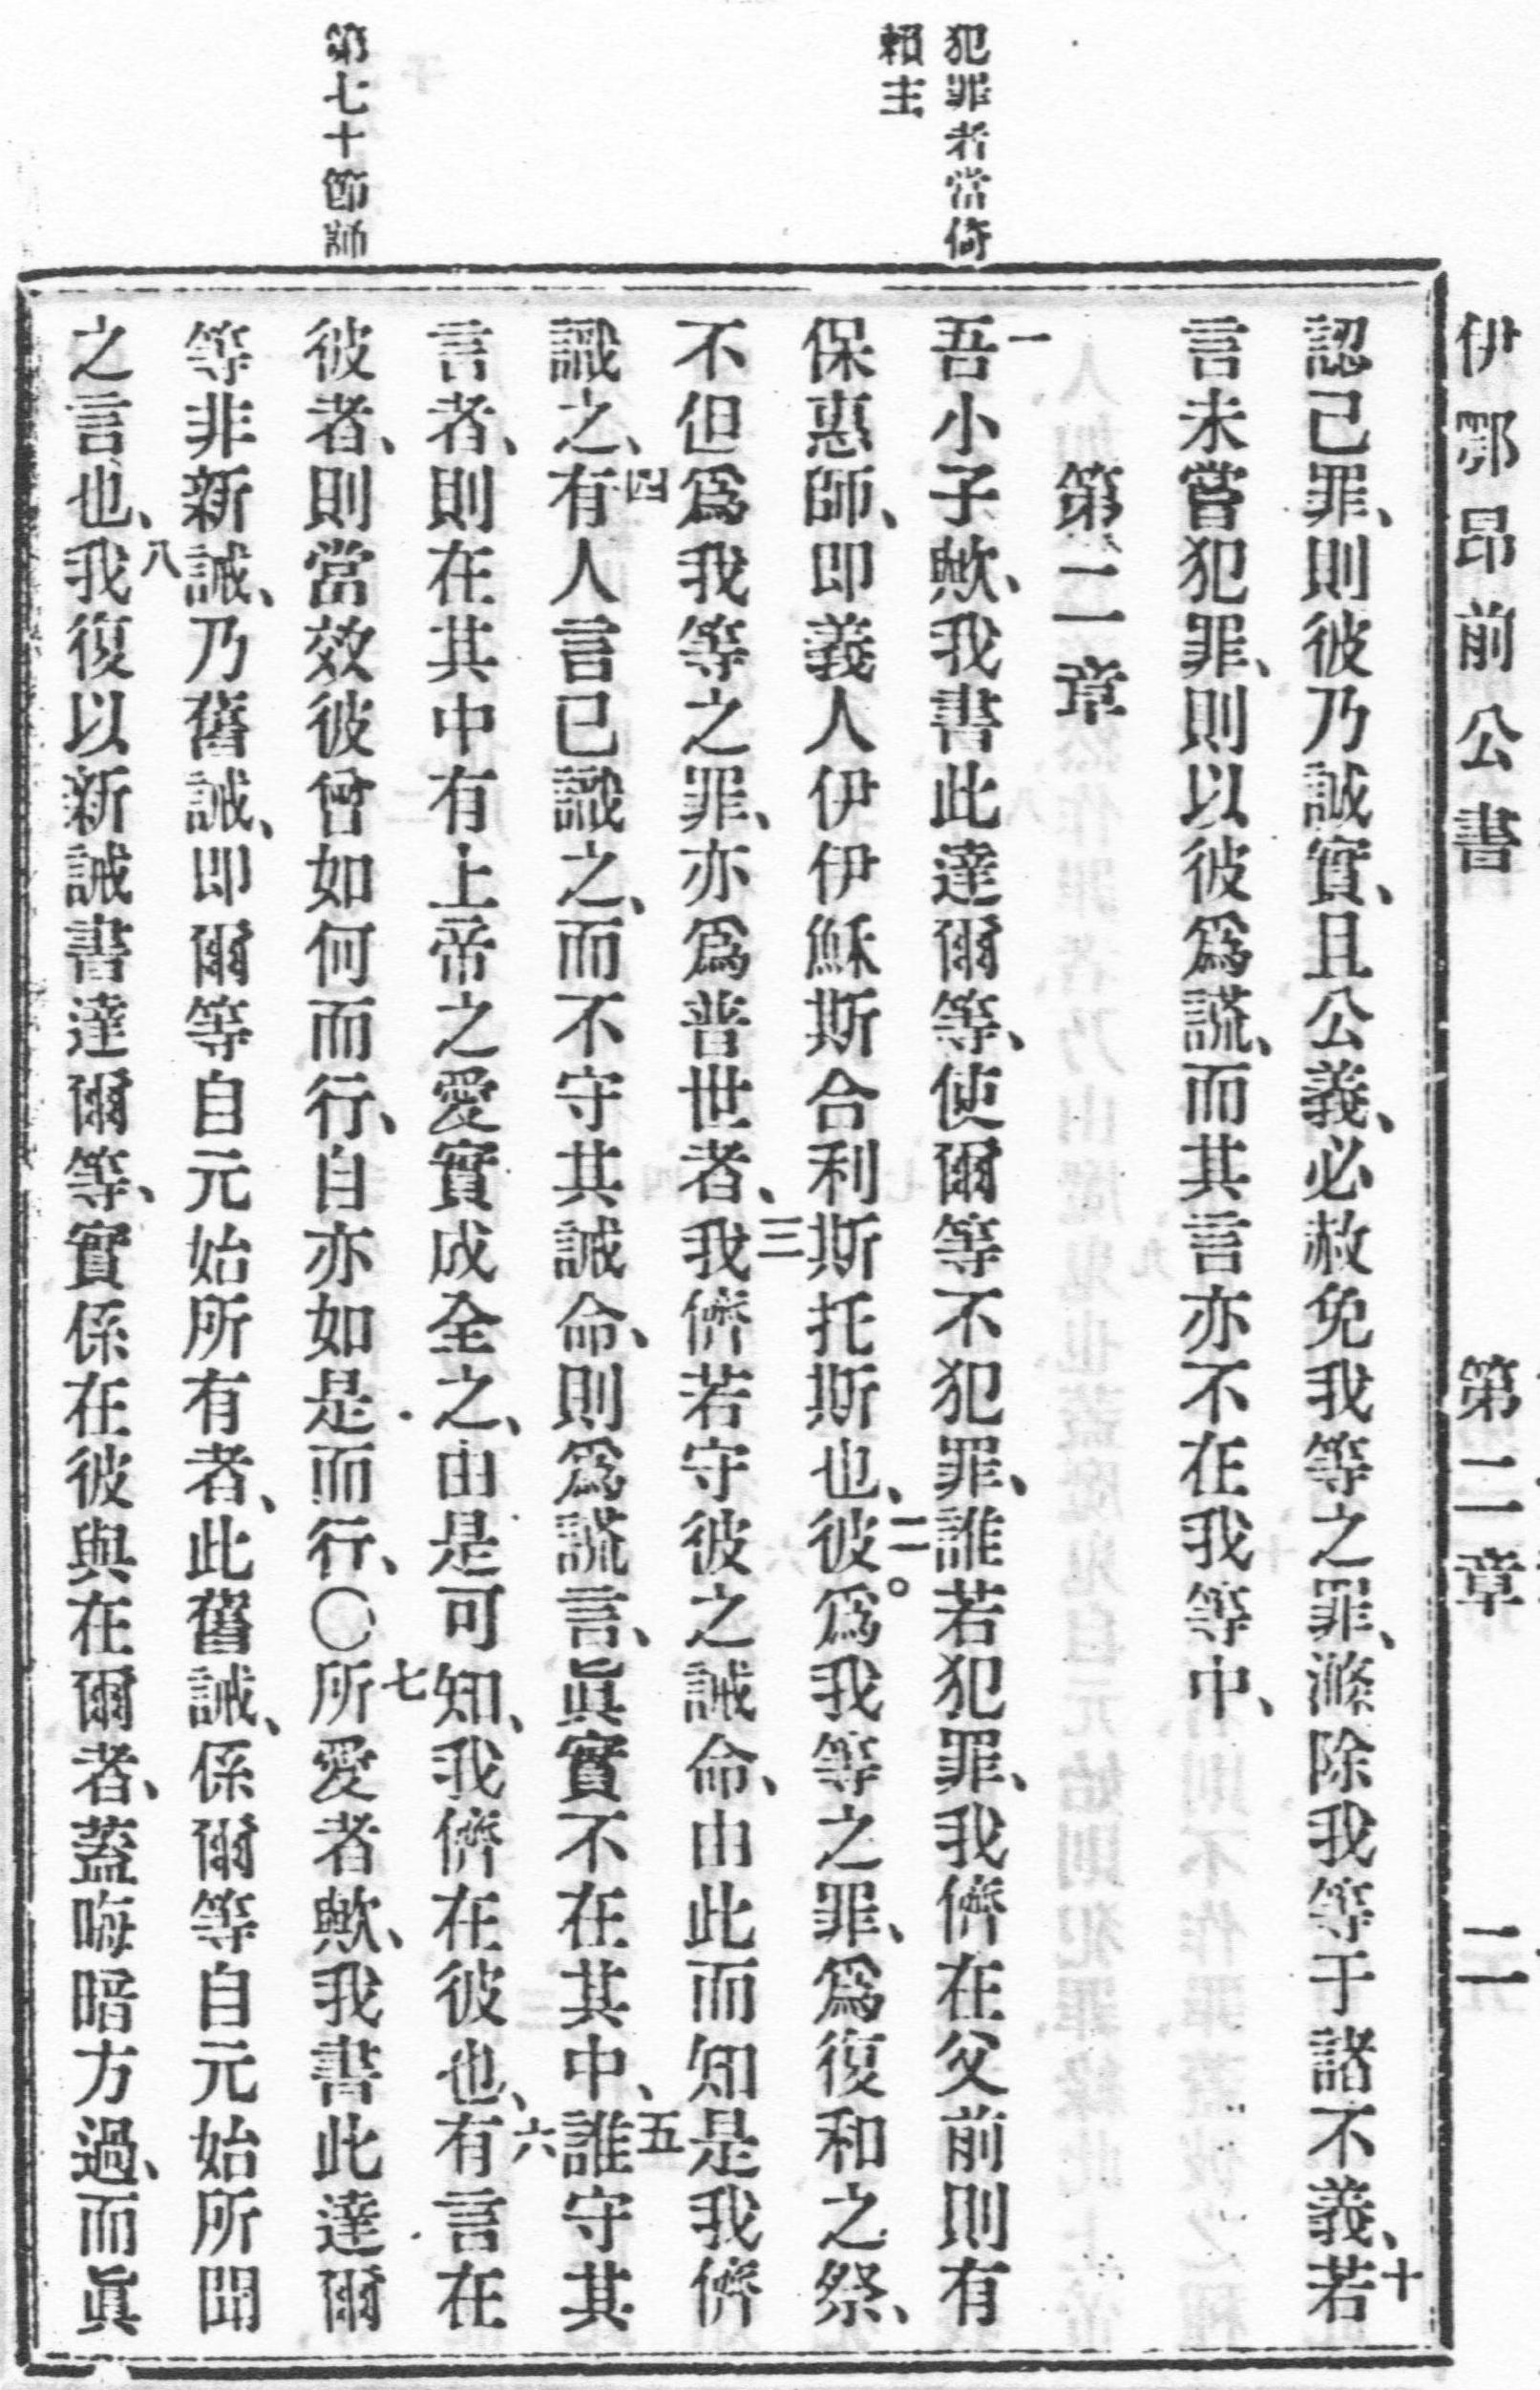 伊鄂昂前公書 第二章 二
犯罪者當倚
賴主
第七十節師
認己罪、則彼乃誠實、且公義、必赦免我等之罪、滌除我等于諸不義、十若
言未嘗犯罪、則以彼爲謊、而其言亦不在我等中、
第二章
一吾小子歟、我書此達爾等、使爾等不犯罪、誰若犯罪、我儕在父前則有
保惠師、即義人伊伊穌斯合利斯托斯也、二彼。爲我等之罪、爲復和之祭、
不但爲我等之罪、亦爲普世者、三我儕若守彼之誡命、由此而知是我儕
識之、四有人言已識之、而不守其誡命、則爲謊言、眞實不在其中、五誰守其
言者、則在其中有上帝之愛實成全之、由是可知、我儕在彼也、六有言在
彼者、則當效彼曾如何而行、自亦如是而行、〇七所愛者歟、我書此達爾
等非新誡、乃舊誡、即爾等自元始所有者、此舊誡、係爾等自元始所聞
之言也、八我復以新誡書達爾等、實係在彼與在爾者、蓋晦暗方過、而眞